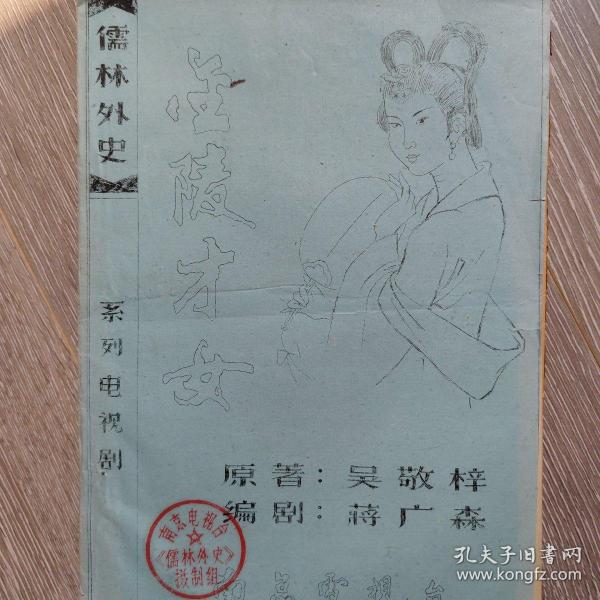 儒林外史
系列电视剧
金陵才女
原著：吴敬梓
编剧：蒋广森
南京电视台
《儒林外史》
摄制组
南京电视台
孔夫子旧书网
www.kongfz.com